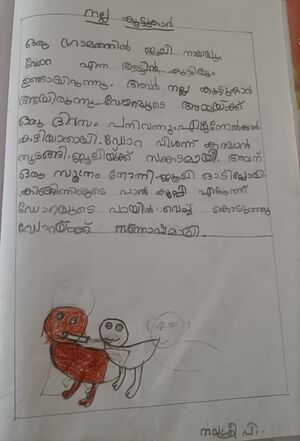 നല്ല കൂട്ടുകാർ
ഒരു ഗ്രാമത്തിൽ ജൂലി നായയും
ഡോറ എന്ന ആട്ടിൻ കുട്ടിയും
ഉണ്ടായിരുന്നു. അവർ നല്ല കൂട്ടുകാർ
ആയിരുന്നു. ഡോറയുടെ അമ്മയ്ക്ക്
ഒരു ദിവസം പനിവന്നു. എഴുന്നേൽക്കാൻ
കഴിയാതായി. ഡോറ വിശന്ന് കരയാൻ
തുടങ്ങി. ജൂലിയ്ക്ക് സങ്കടമായി. അവന്
ഒരു സൂത്രം തോന്നി. ജൂലി ഓടിപ്പോയി
പാൽ കുപ്പി എടുത്ത്
ഡോറയുടെ വായിൽ വെച്ച് കൊടുത്തു
ഡോറയ്ക്ക് സന്തോഷമായി.
പി.